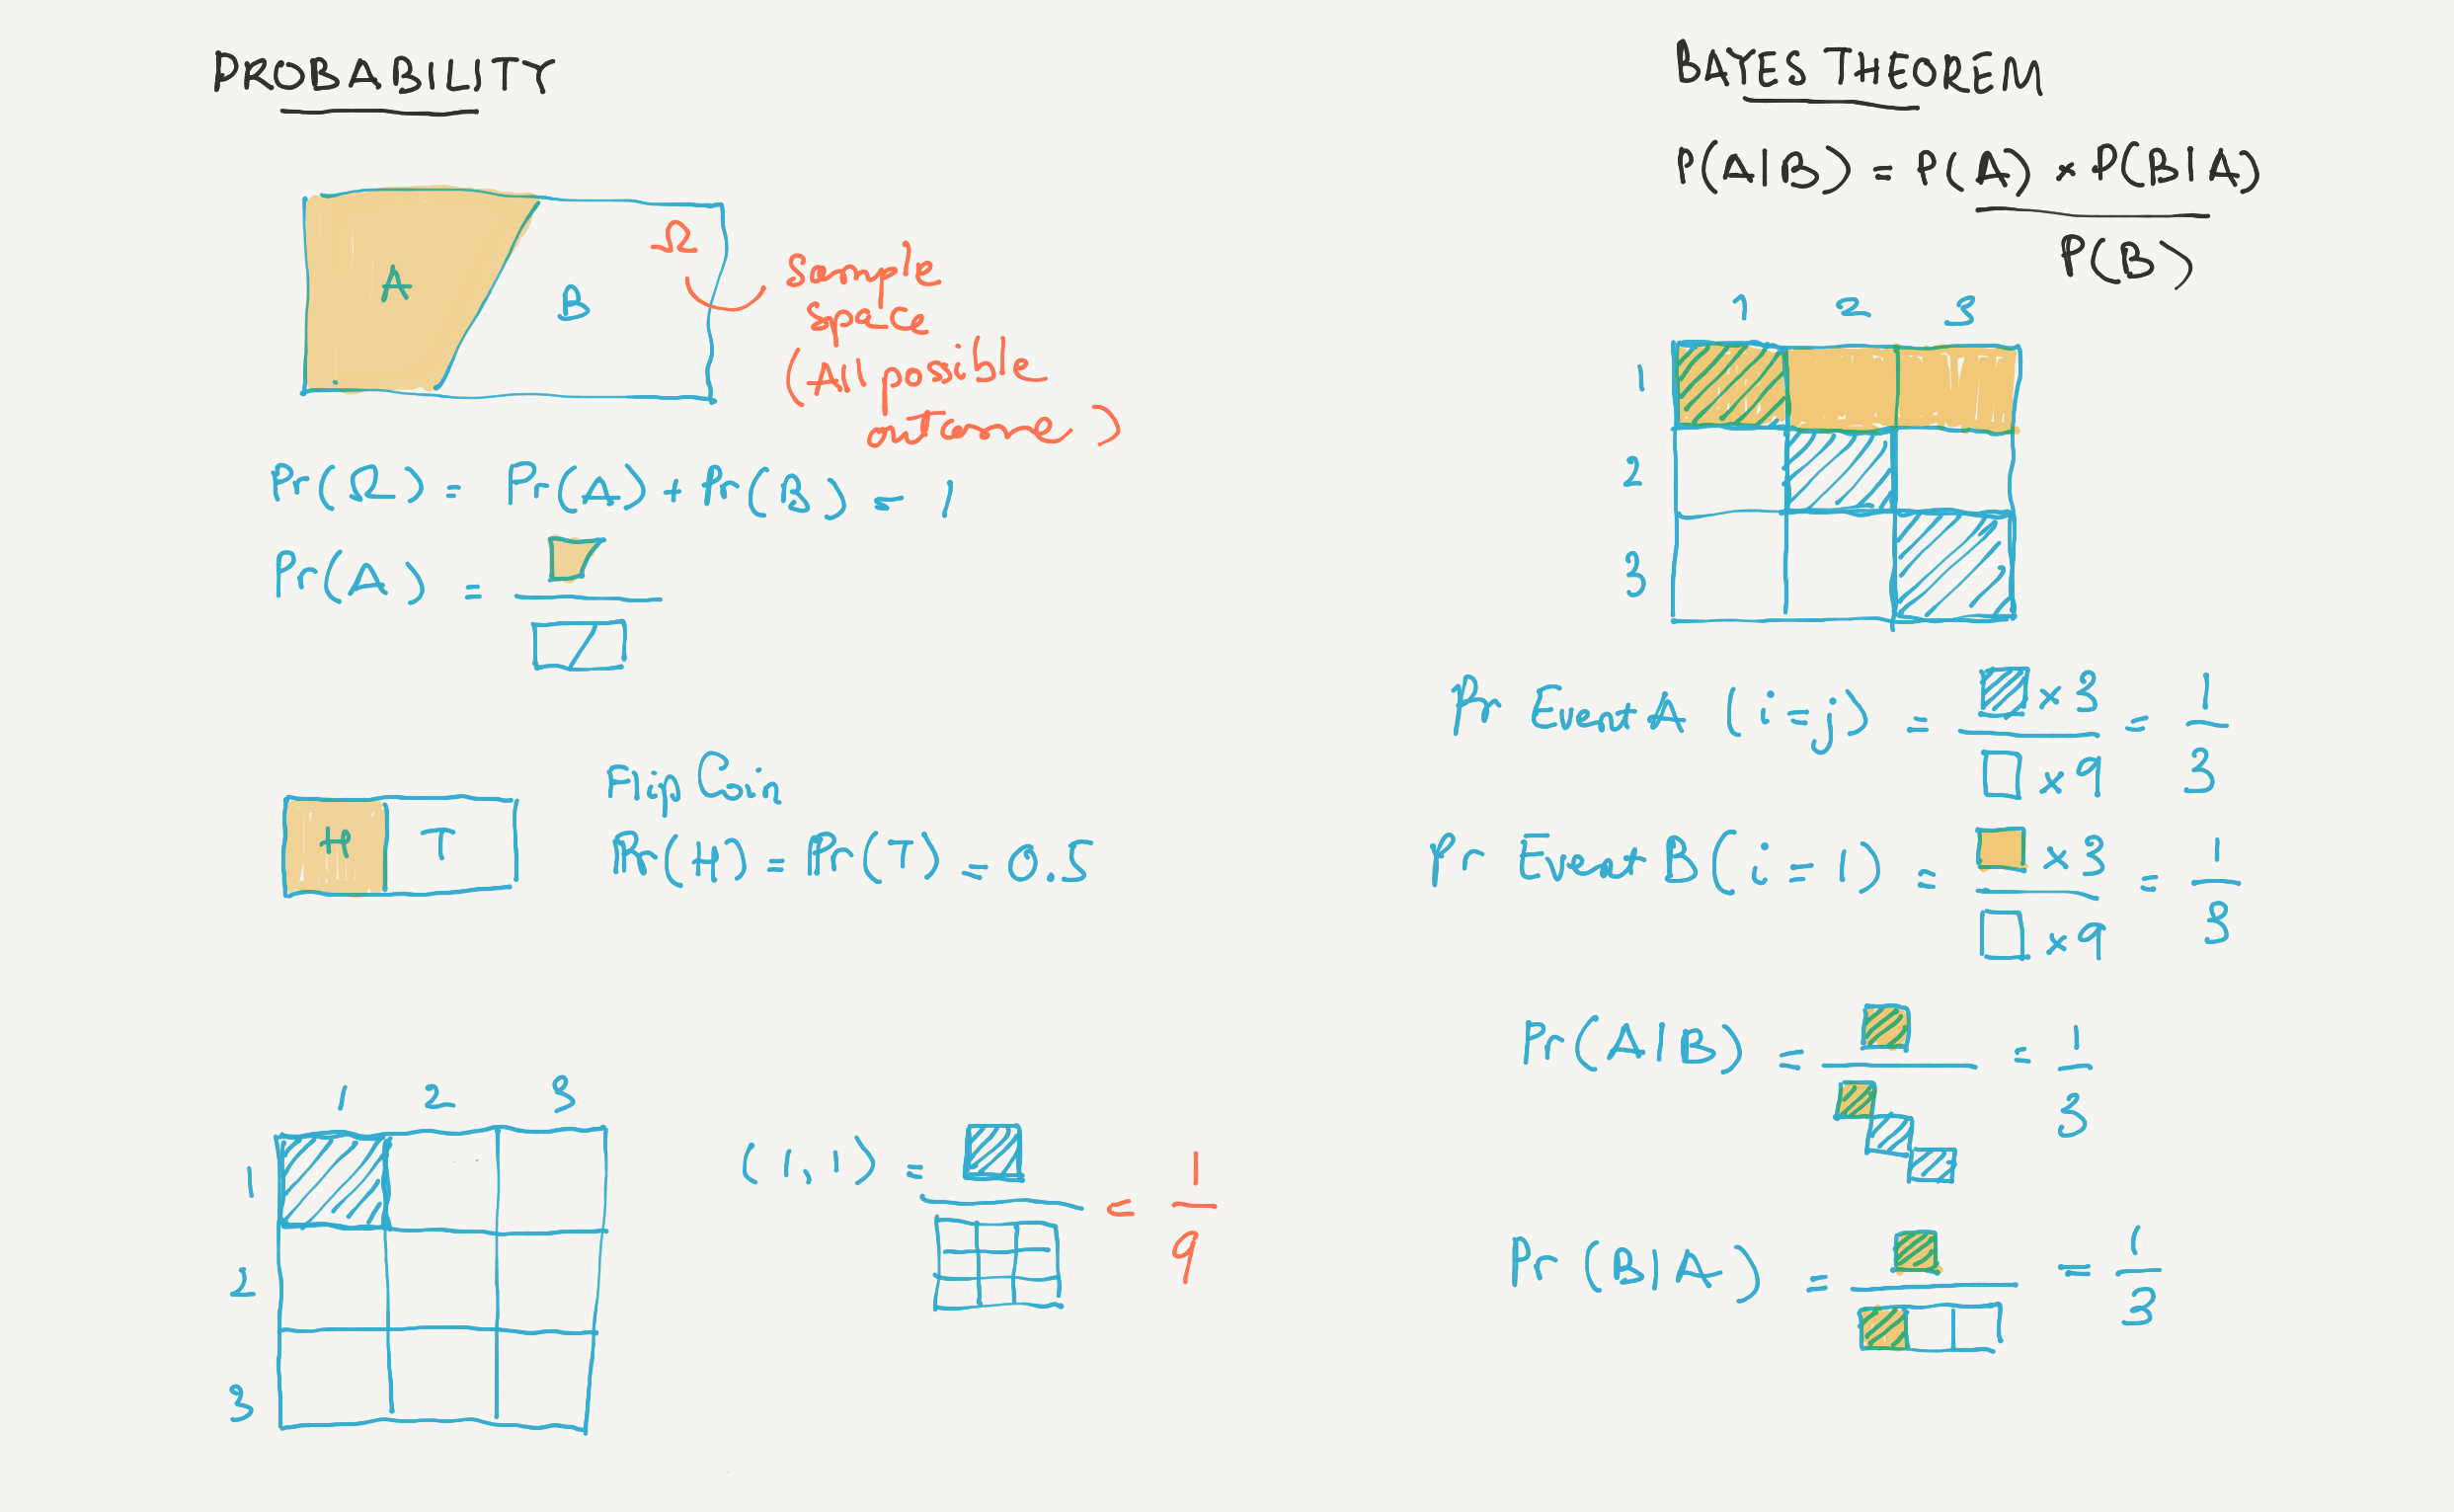 PROBABILITY
A
B
Ω
sample
space
(All possible
outcomes)
Pr(Ω) = Pr(A) + Pr(B) = 1
Pr(A) =
H
T
Flip Coin
Pr(H) = Pr(T) = 0.5
1 2 3
1
2
3
(1,1) = = 1/9
BAYES THEOREM
P(A|B) = P(A) × P(B|A)
P(B)
1 2 3
1
2
3
Pr Event A (i=j) = ×3 / ×9 = 1/3
Pr Event B (i=1) = ×3 / ×9 = 1/3
Pr(A|B) = = 1/3
Pr(B|A) = = 1/3